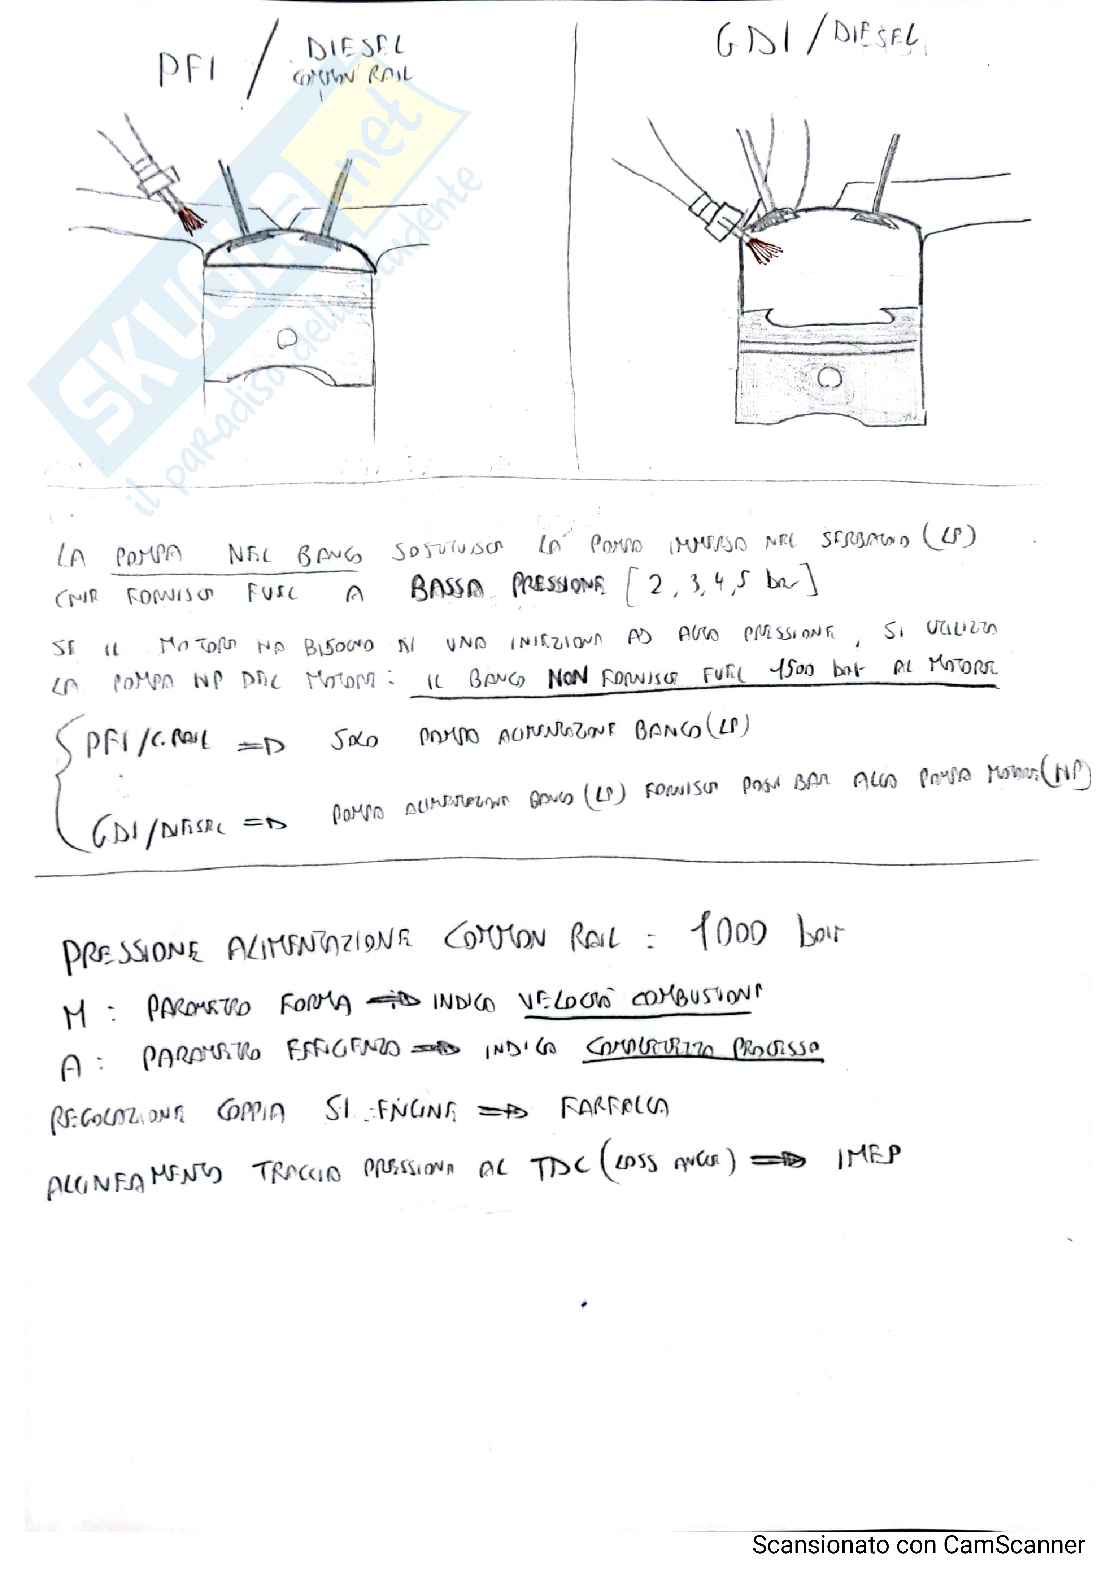 PFI / DIESEL
COMMON RAIL
GDI / DIESEL
SKUOLA.net
il paradiso dello studente
LA POMPA NEL BANCO SOSTITUISCE LA POMPA IMMERSA NEL SERBATOIO (LP)
CHE FORNISCE FUEL A BASSA PRESSIONE [2, 3, 4, 5 bar]
SE IL MOTORE HA BISOGNO DI UNA INIEZIONE AD ALTA PRESSIONE, SI UTILIZZA
LA POMPA HP DEL MOTORE: IL BANCO NON FORNISCE FUEL 1500 bar AL MOTORE
PFI/C.RAIL => SOLO POMPA ALIMENTAZIONE BANCO (LP)
GDI/DIESEL => POMPA ALIMENTAZIONE BANCO (LP) FORNISCE POCHI BAR ALLA POMPA MOTORE (HP)
PRESSIONE ALIMENTAZIONE COMMON RAIL: 1000 bar
M: PARAMETRO FORMA => INDICA VELOCITÀ COMBUSTIONE
A: PARAMETRO EFFICIENZA => INDICA COMPLETEZZA PROCESSO
REGOLAZIONE COPPIA SI ENGINE => FARFALLA
ALLINEAMENTO TRACCIA PRESSIONE AL TDC (LOSS ANGLE) => IMEP
Scansionato con CamScanner